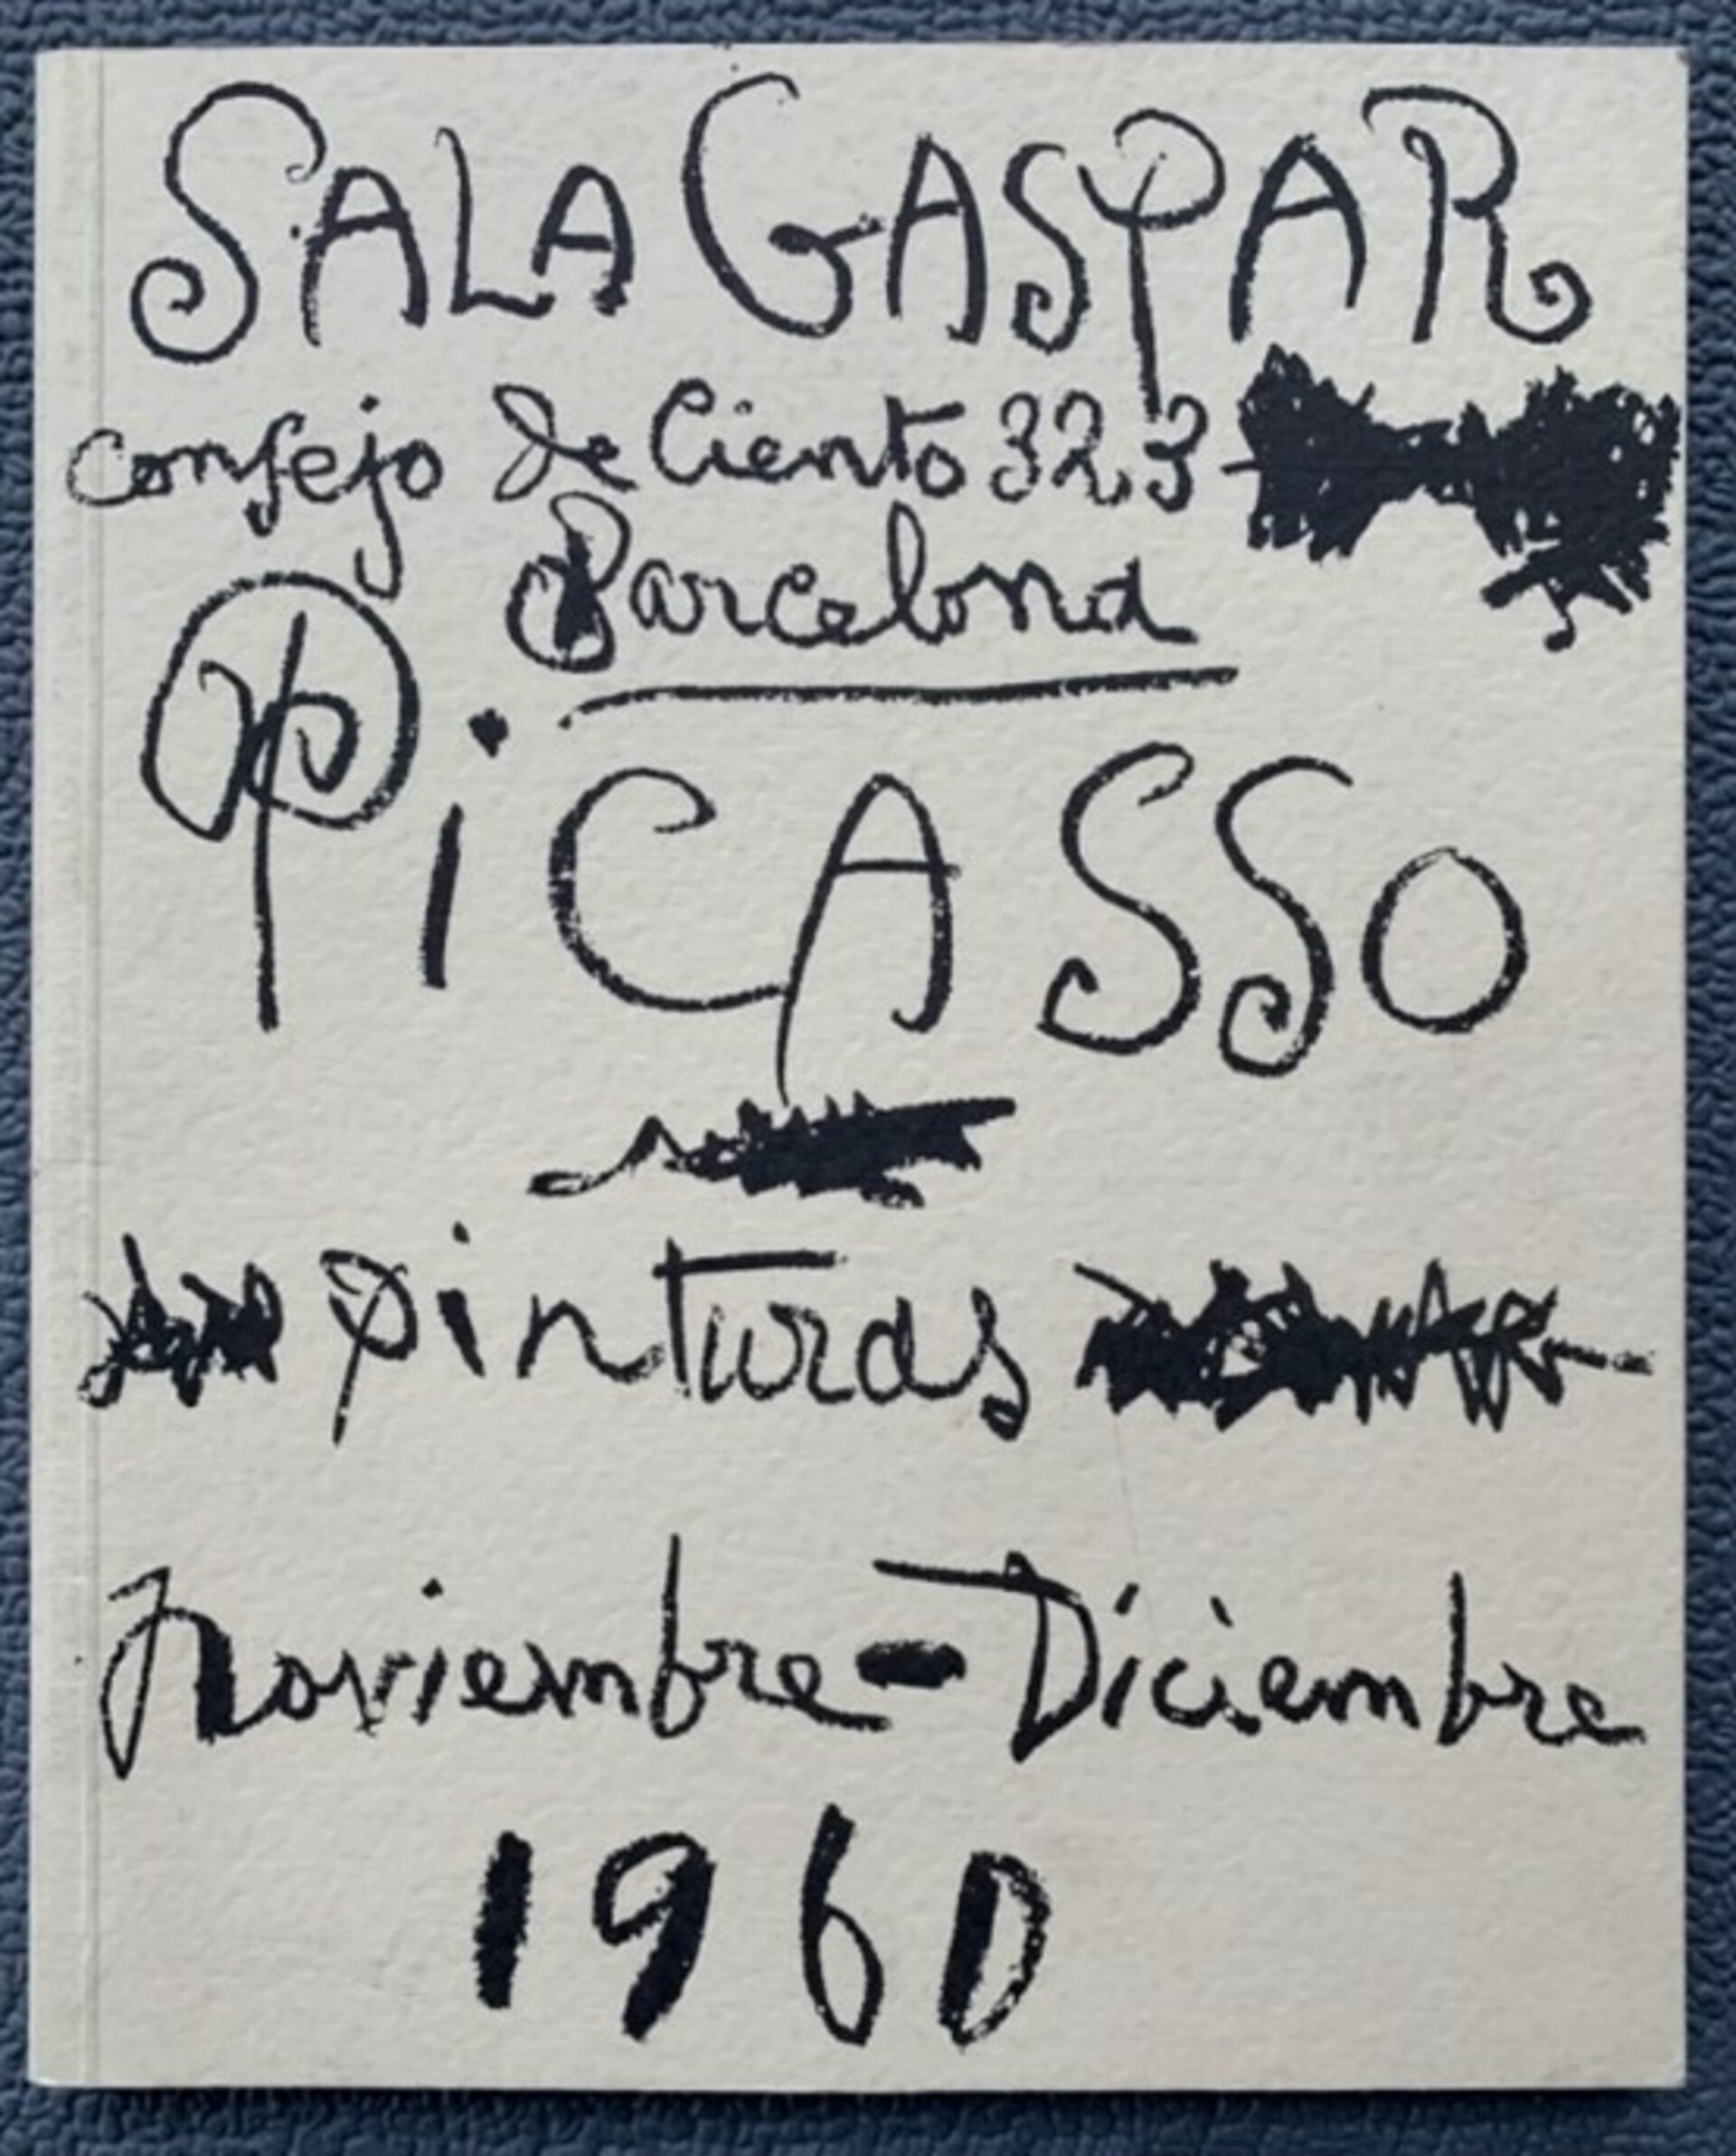 SALA GASPAR
consejo de Ciento 323
Barcelona
PiCASSO
pinturas
noviembre - Diciembre
1960